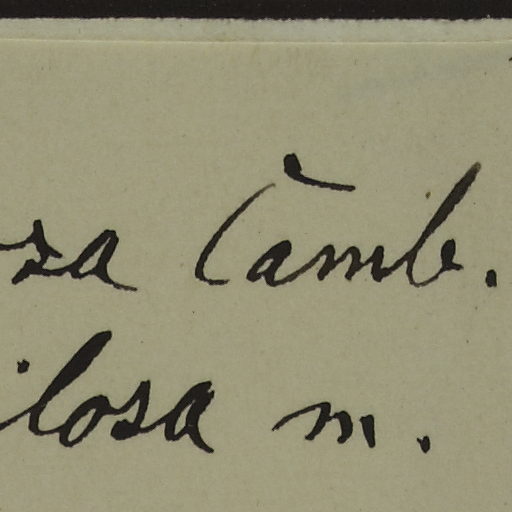 sa Camb.
ilosa m.